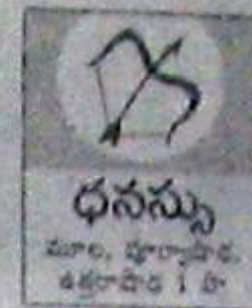 ధనస్సు
మూల, పూర్వాషాఢ,
ఉత్తరాషాఢ 1 పా